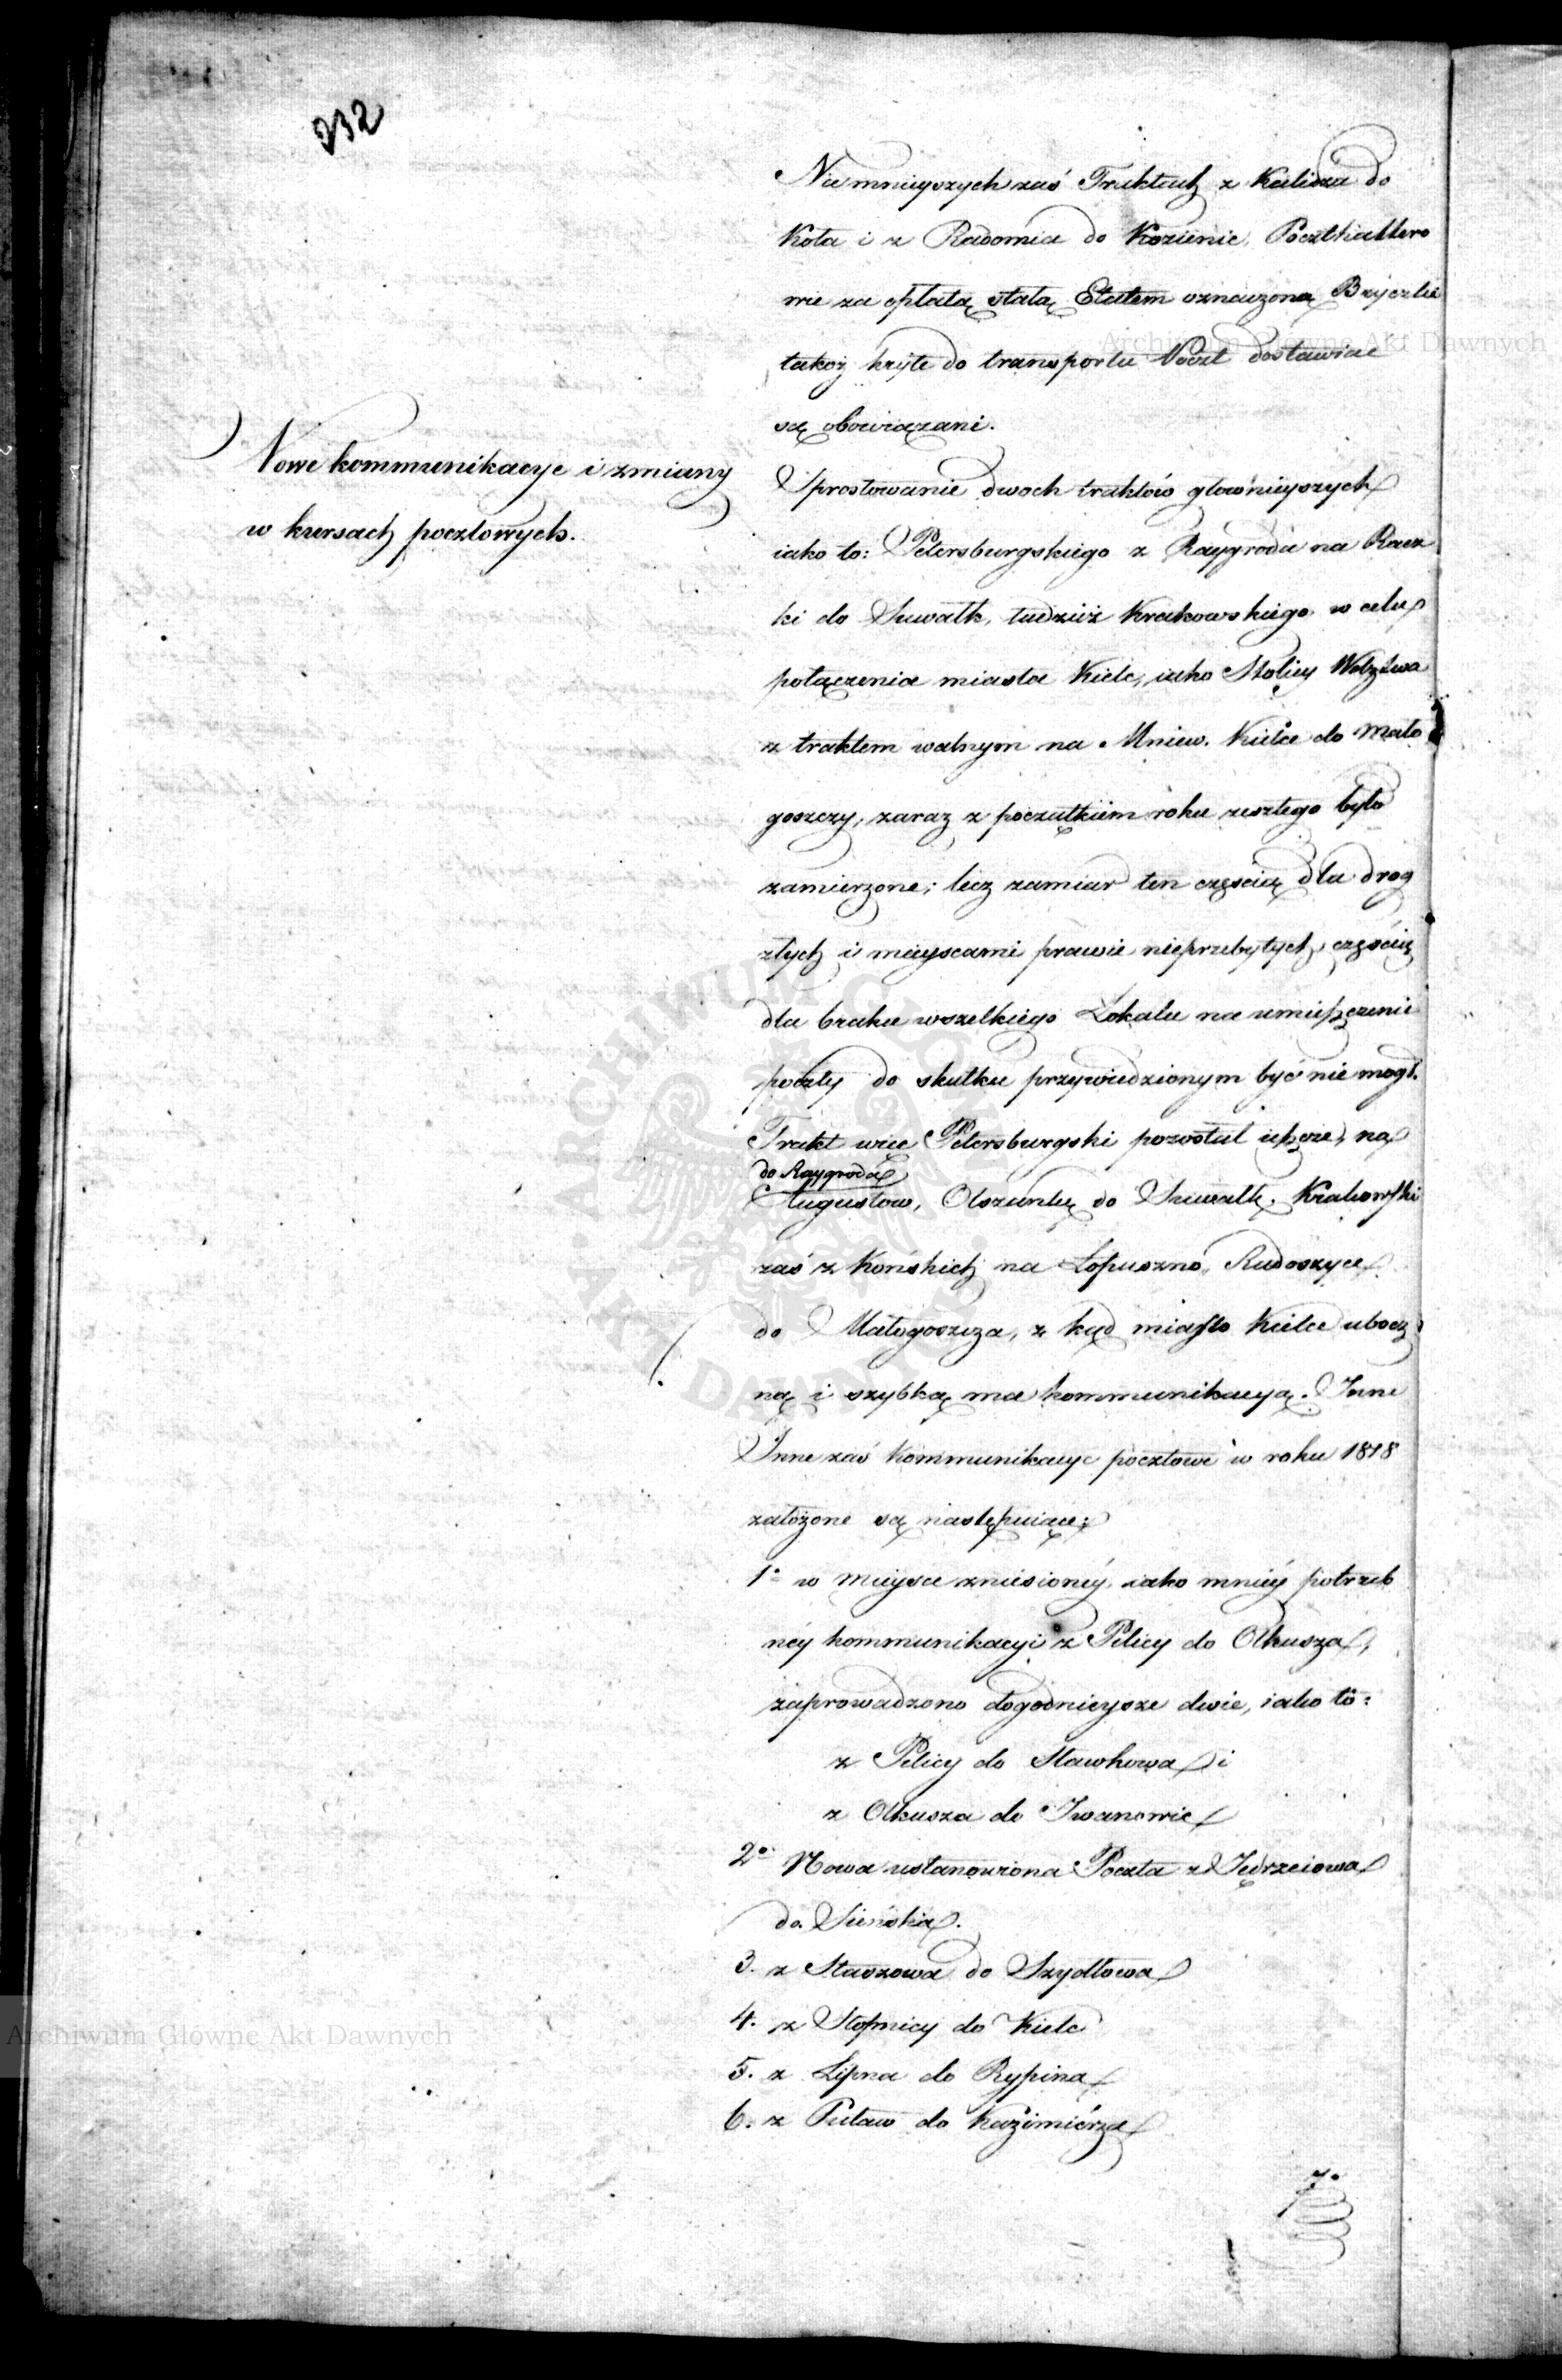 232
Na mnieyszych zaś Traktach z Kalisza do
Koła i z Radomia do Kozienic, Poczthaltero
wie za opłatą stałą Etatem oznaczoną Bryczki
takoż kryte do transportu Poczt dostawiać
są obowiązani.
Nowe kommunikacye i zmiany
w kursach pocztowych.
Sprostowanie dwoch traktów głownieyszych
iako to: Petersburgskiego z Raygroda na Racz
ki do Suwałk, tudzież Krakowskiego w celu
połączenia miasta Kielc, iako Stolicy Wdztwa
z traktem walnym na Mniew. Kielce do Mało
goszczy, zaraz z początkiem roku zeszłego było
zamierzone; lecz zamiar ten częscią dla drog
złych i mieyscami prawie nieprzebytych, częścią
dla braku wszelkiego Lokalu na umieszczenie
poczty do skutku przywiedzionym być nie mogł.
Trakt więc Petersburgski pozostał ieszcze, na
do Raygroda
Augustow, Olszankę do Suwałk. Krakowski
zaś z Końskich na Łopuszno, Radoszyce
do Małogoszcza, z kąd miasto Kielce ubocz
ną i szybką ma kommunikacyą. Inne
Inne zaś kommunikacye pocztowe w roku 1818
założone są następuiące:
1o w mieysce zniesioney, iako mniéy potrzeb
néy kommunikacyi z Pilicy do Olkusza,
zaprowadzono dogodnieysze dwie, iako to:
z Pilicy do Sławkowa i
z Olkusza do Iwanowic
2o Nowa ustanowiona Poczta z Jędrzeiowa
do Sieńska.
3. z Staszowa do Szydłowa
4. z Stopnicy do Kielc
5. z Lipna do Rypina
6. z Puław do Kaźimiérza
7.
Archiwum Główne Akt Dawnych
Archiwum Główne Akt Dawnych
ARCHIWUM GŁÓWNE AKT DAWNYCH